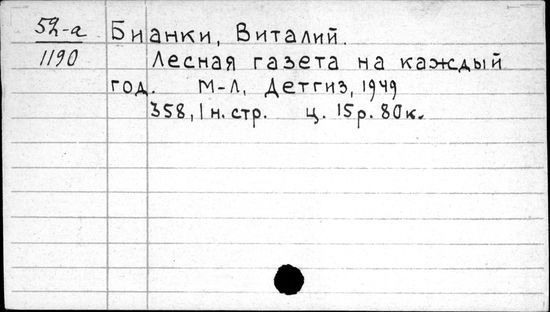 52-а
1190
Бианки, Виталий.
Лесная газета на каждый
год. М-Л, Детгиз, 1949
358, 1 н. стр. ц. 15 р. 80 к.